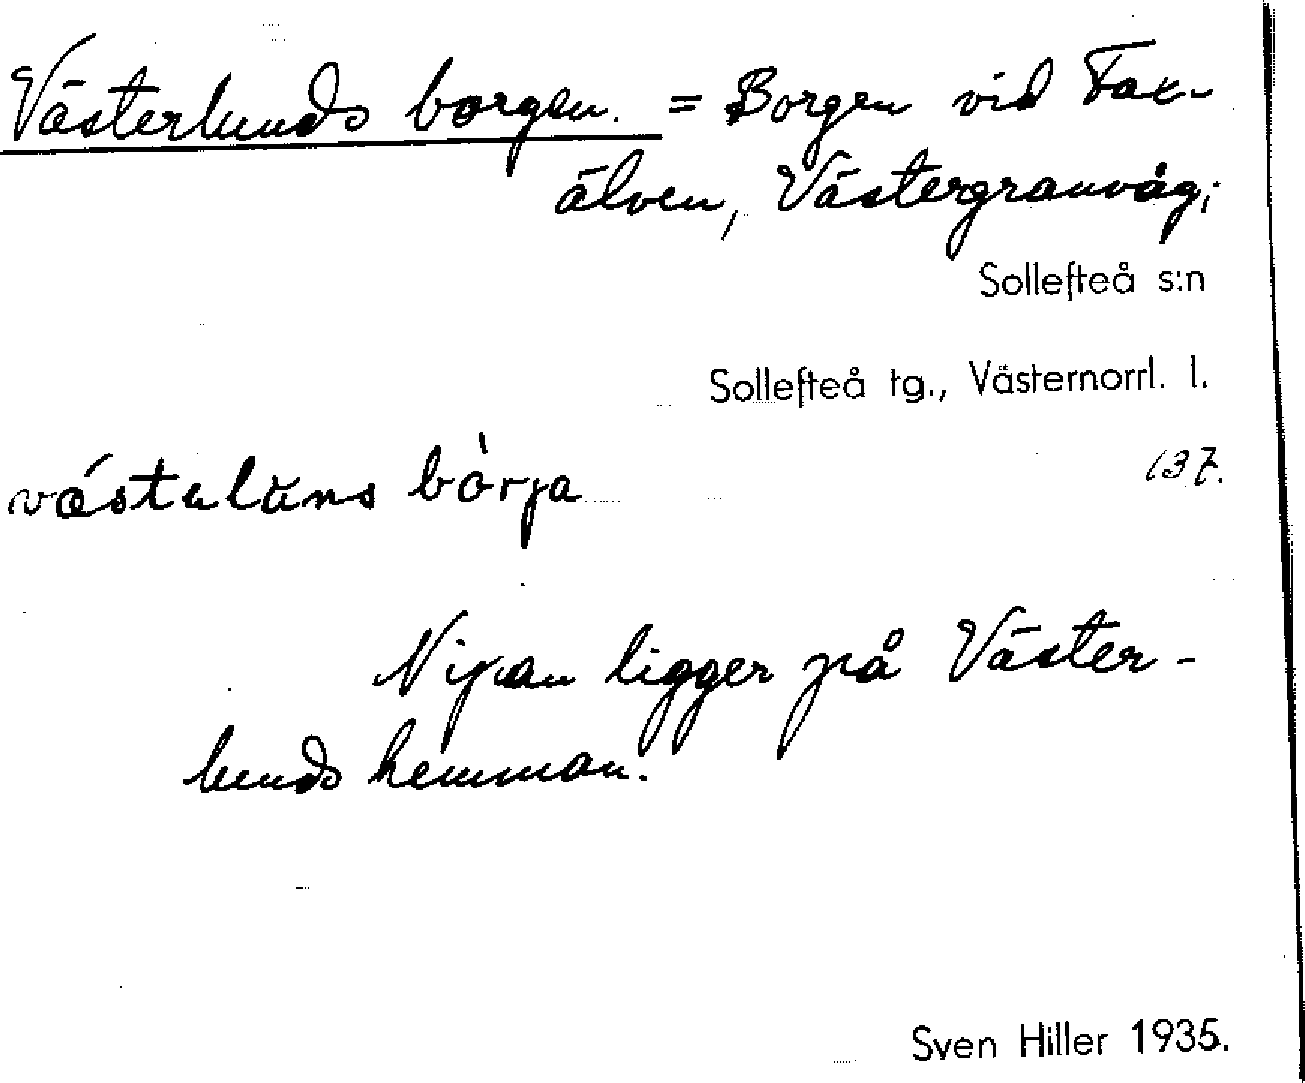 Västerlunds borgen. = Borgen vid Fax-
älven, Västergranvåg;
Sollefteå s:n
Sollefteå tg., Västernorrl. l.
137.
börja
Nipan ligger på Väster-
lunds hemman.
Sven Hiller 1935.